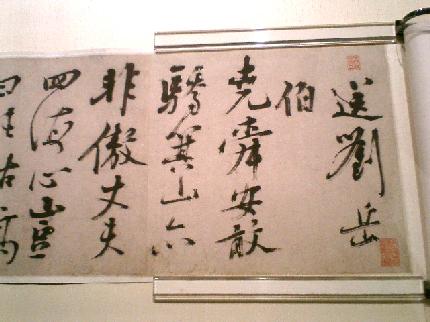 送劉岳
伯
堯舜安敢
驕箕山亦
非傲丈夫
四海心山靈
古